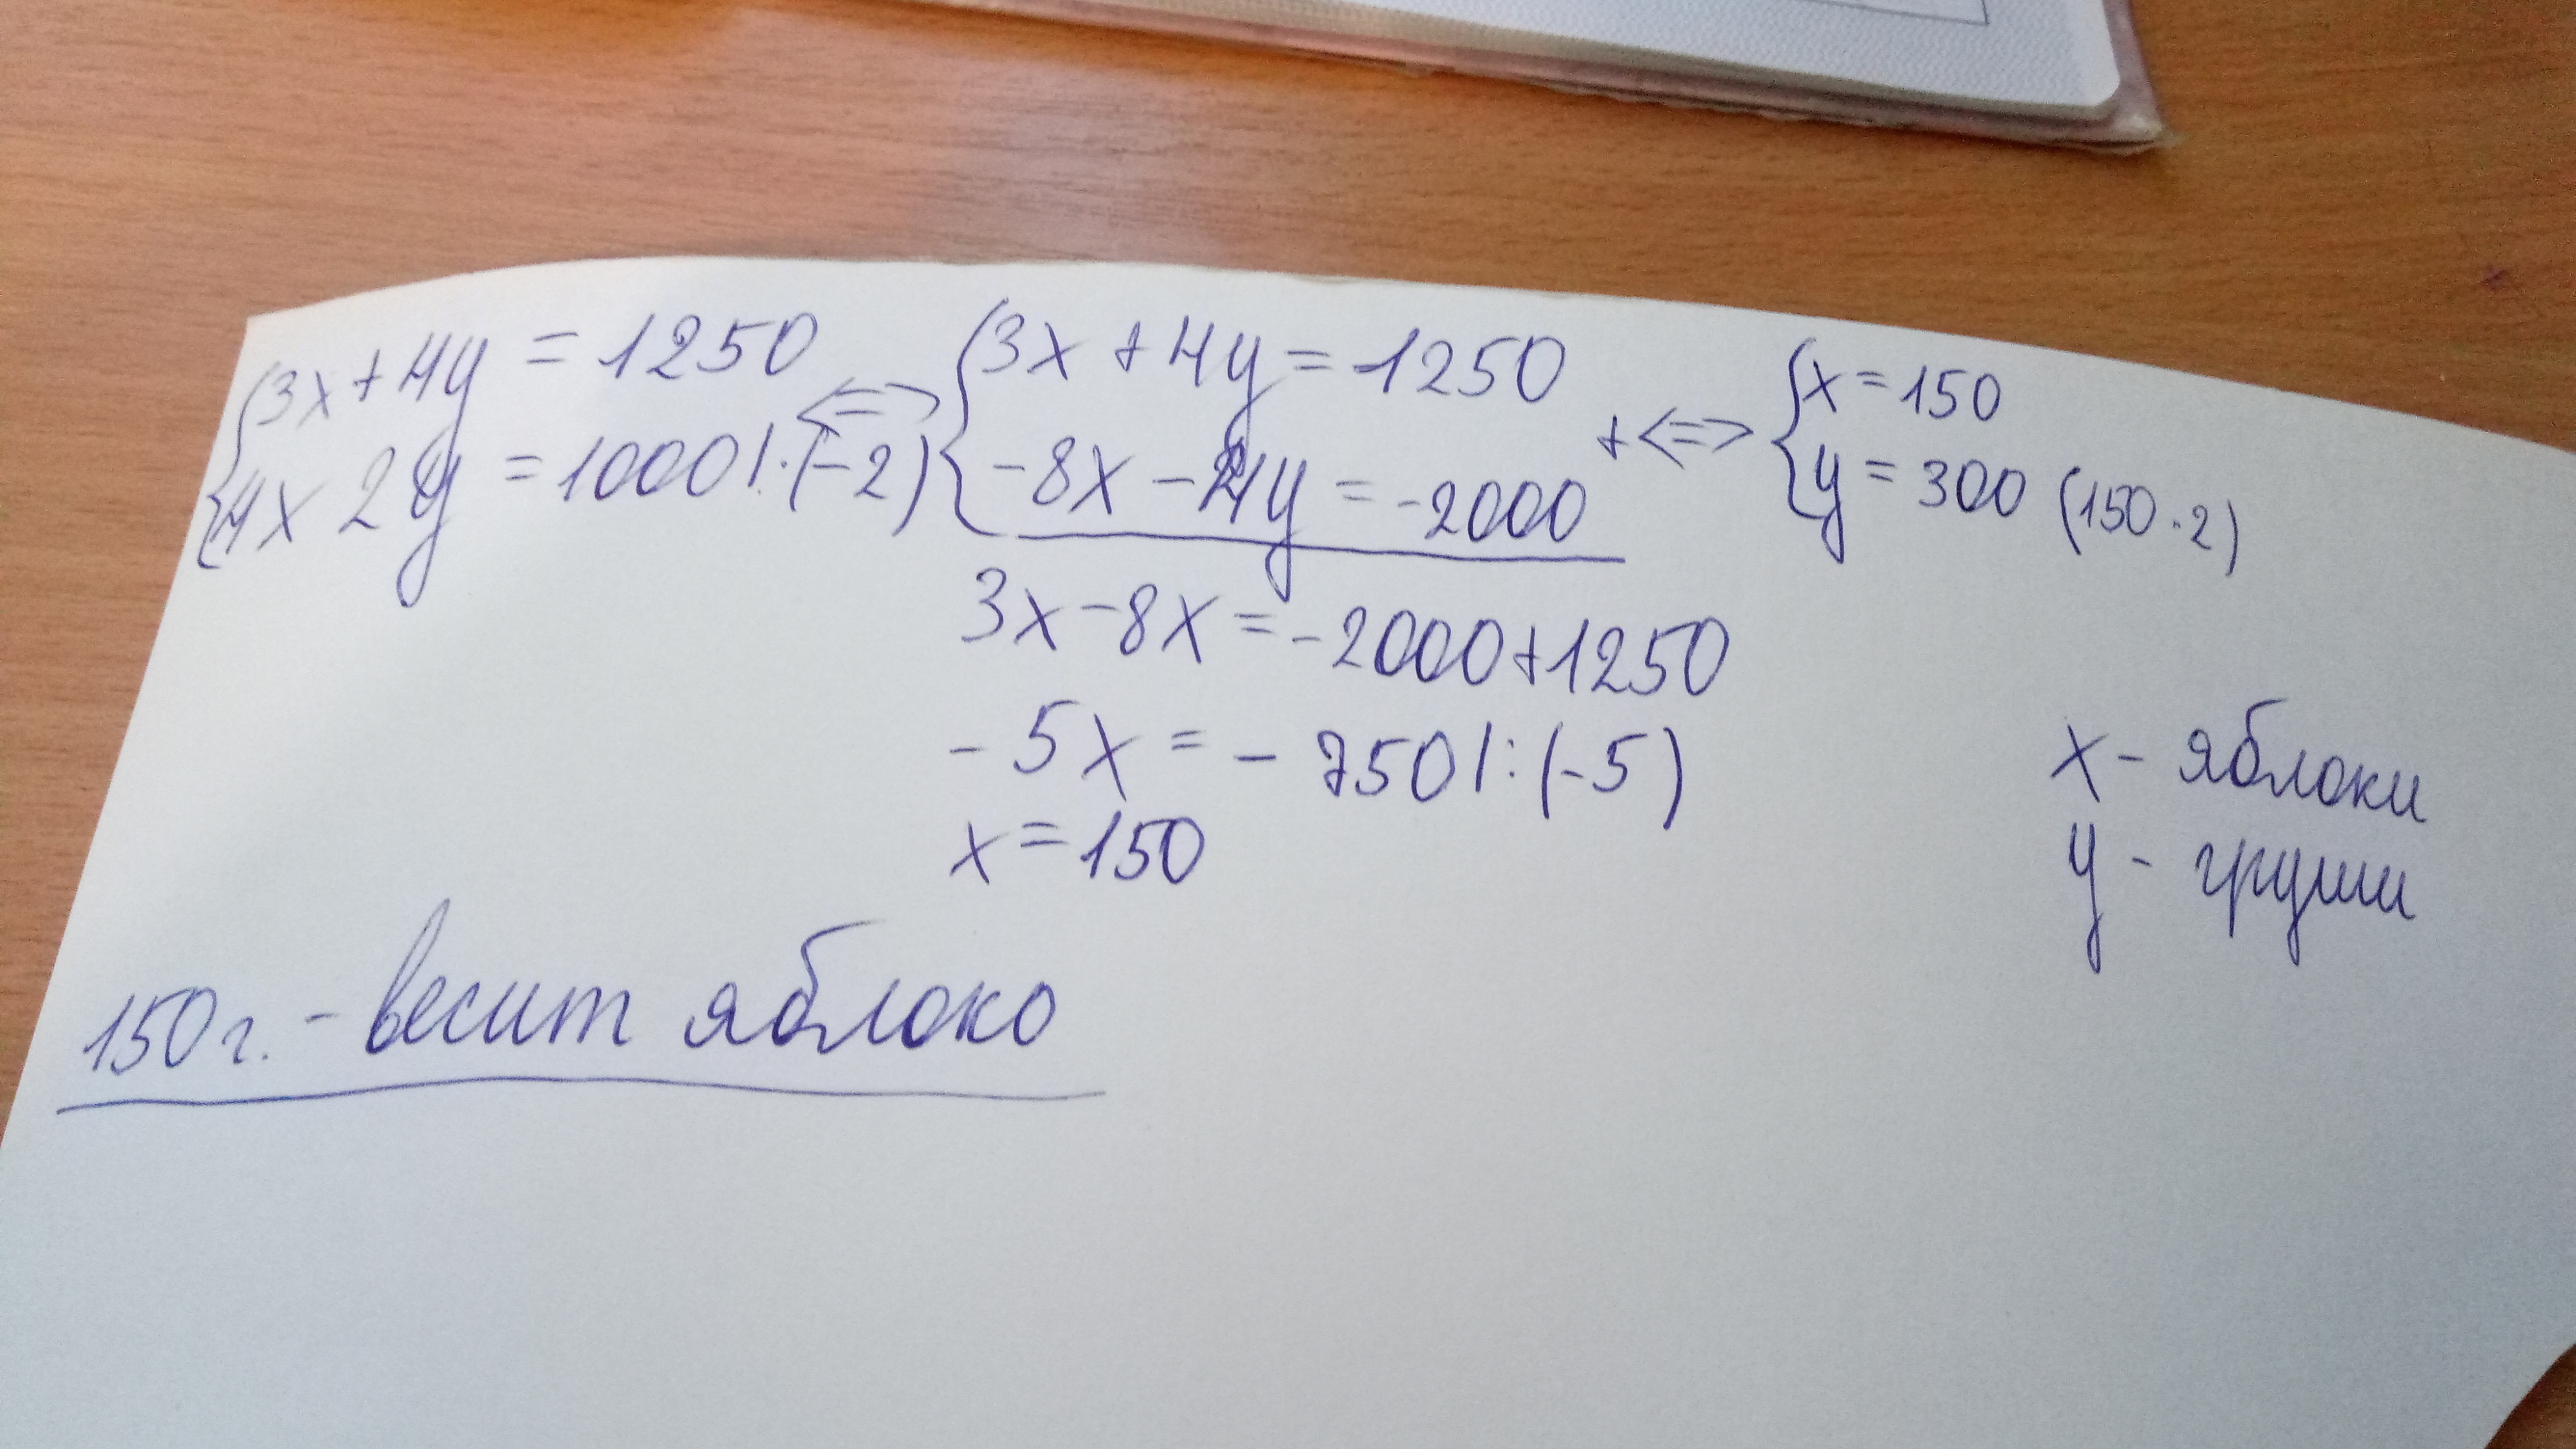 3x + 4y = 1250 <=> 3x + 4y = 1250 + <=> x = 150
4x 2y = 1000 | · (-2) -8x - 4y = -2000 y = 300 (150 · 2)
3x - 8x = -2000 + 1250
-5x = -750 | : (-5)
x = 150
x - яблоки
y - груши
150 г. - весит яблоко